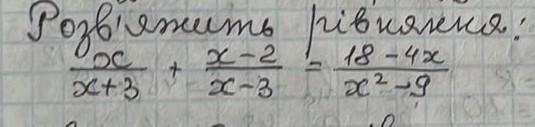 Розв'яжить рівняння:
x/(x+3) + (x-2)/(x-3) = (18-4x)/(x²-9)